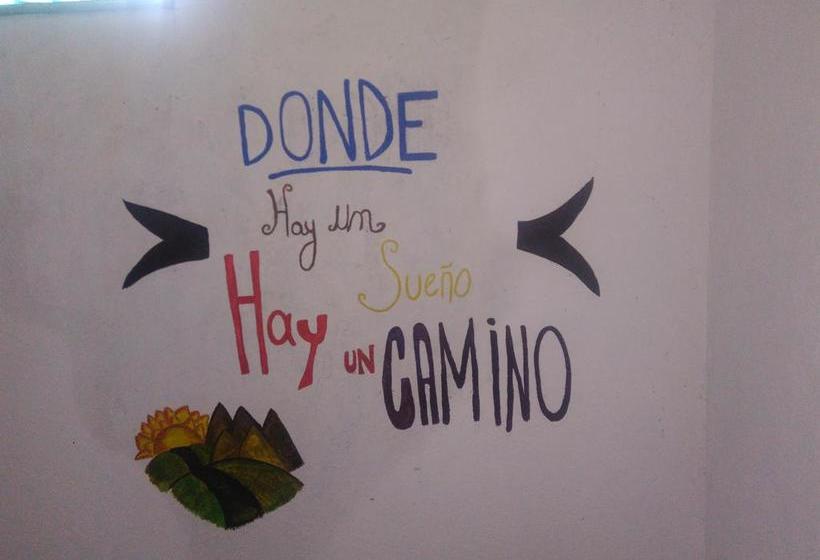 DONDE
Hay un
Sueño
Hay UN CAMiNO